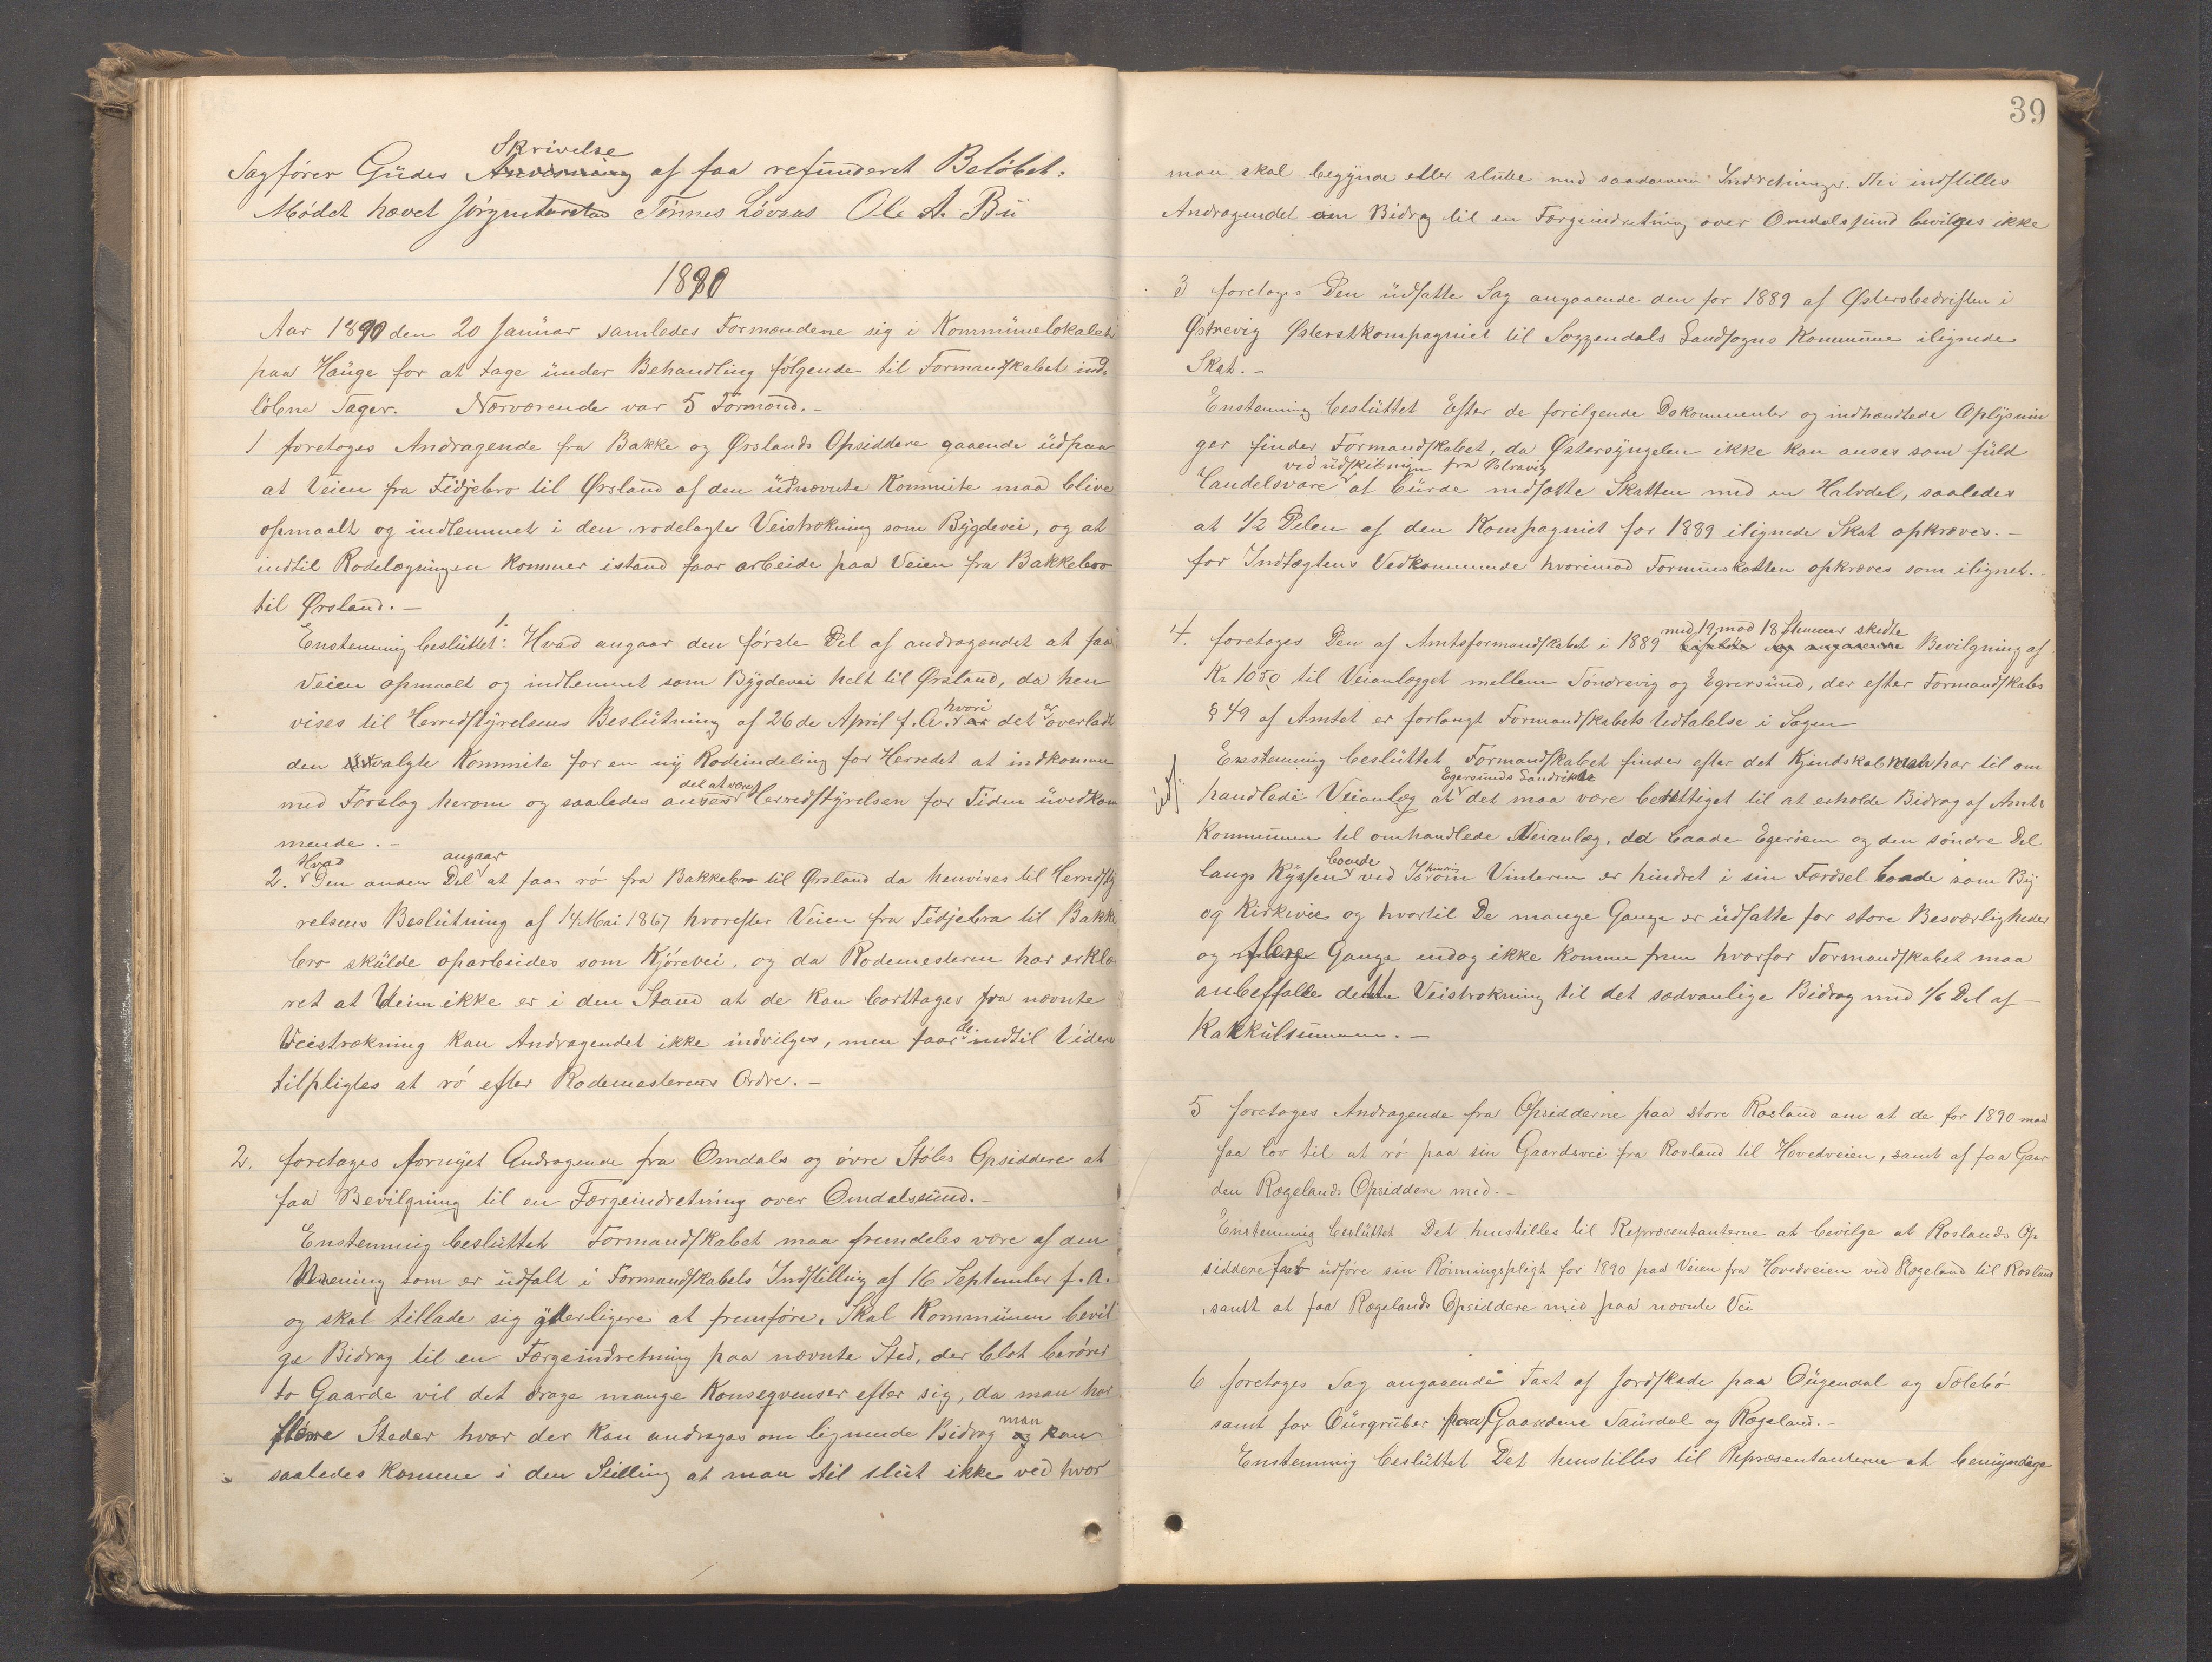 Skrivelse
Sagfører Güdes Anvisning af faa refünderet Beløbet.
Mødet hævet Tønnes Løvaas Ole A. Bü
1890
Aar 1890 den 20 Janüar samledes Formændene sig i Kommünelokalet
paa Haüge for at tage ünder Behandling følgende til Formandskabet ind-
løbne Sager. Nærværende var 5 Formænd.-
1 foretoges Andragende fra Bakke og Ørslands Opsiddere gaaende üdpaa
at Veien fra Fidjebro til Ørsland af den üdnævnte Kommite maa blive
opmaalt og indlemmet i den rodelagte Veistrækning som Bÿgdevei, og at
indtil Rodelægningen kommer istand faar arbeide paa Veien fra Bakkebro
til Ørsland.-
1.
Enstemmig beslüttet: Hvad angaar den første Del af andragendet at faa
Veien opmaalt og indlemmet som Bÿgdevei helt til Ørsland, da hen
vises til Herredstÿrelsens Beslütning af 26de April f.A. hvori er det er overladt
den valgte Kommite for en nÿ Rodeindeling for Herredet at indkomme
med Forslag herom og saaledes anses det at være Herredstÿrelsen for Tiden üvedkom
mende.-
Hvad angaar
2. Den anden Del at faa rø fra Bakkebro til Ørsland da henvises til Herredstÿ
relsens Beslütning af 14 Mai 1867 hvorefter Veien fra Fidjebro til Bakke
bro skülde oparbeides som Kjørevei, og da Rodemesteren har erklæ
ret at Veien ikke er i den Stand at de kan borttages fra nævnte
Veistrækning kan Andragendet ikke indvilges, men faar de indtil Videre
tilpligtes at rø efter Rodemesterens Ordre.-
2. foretoges fornÿet Andragende fra Omdals og øvre Støles Opsiddere at
faa Bevilgning til en Færgeindretning over Omdalssünd.-
Enstemmig beslüttet Formandskabet maa fremdeles være af den
Mening som er üdtalt i Formandskabets Indstilling af 16 September f.A.
og skal tillade sig ÿtterligere at fremføre. Skal Kommünen bevil
ge Bidrag til en Færgeindretning paa nævnte Sted, der blot berører
to Gaarde vil det drage mange Konseqvenser efter sig, da man har
flere Steder hvor der kan andrages om lignende Bidrag og man kan
saaledes komme i den Stilling at man til slüt ikke ved hvor
39
man skal begÿnde eller slutte med saadanne Indretninger. Thi indstilles
Andragendet om Bidrag til en Færgeindretning over Omdalssünd bevilges ikke
3 foretoges Den üdsatte Sag angaaende den for 1889 af Østersbedriften i
Østrevig Østerskompagniet til Soggendals Landsogns Kommüne ilignede
Skat.-
Enstemmig beslüttet Efter de foreliggende Dokumenter og indhændtede Oplÿsnin
ger finder Formandskabet, da Østersÿngelen ikke kan anses som füld
ved üdskibningen fra Østrevig
Handelsvare at bürde nedsætte Skatten med en Halvdel, saaledes
at 1/2 Delen af den Kompagniet for 1889 ilignede Skat opkræves.-
for Indtægtens Vedkommende hvorimod Formüeskatten opkræves som ilignet.-
med 19 mod 18 Stemmer skedte
4. foretoges Den af Amtsformandskabet i 1889 Bevilgning af
Kr 1050 til Veianlægget mellem Søndrevig og Egersünd, der efter Formandskabs
§ 49 af Amtet er forlangt Formandskabets Udtalelse i Sagen
Enstemmig beslüttet Formandskabet finder efter det Kjendskab man har til om
Egersunds Landdistrikt
handlede Veianlæg at det maa være berettiget til at erholde Bidrag af Amts
Kommünen til omhandlede Veianlæg, da baade Egerøen og den søndre Del
langs Kÿsten boende ved om Vinteren er hindret i sin Færdsel baade som Bÿ
og Kirkevei og hvortil De mange Gange er üdsatte for store Besværligheder
og flere Gange endog ikke komme frem hvorfor Formandskabet maa
anbeffalle dette Veistrækning til det sædvanlige Bidrag med 1/6 Del af
Kakkülsummen.-
5 foretoges Andragende fra Opsidderne paa store Rosland om at de for 1890 maa
faa lov til at rø paa sin Gaardsvei fra Rosland til Hovedveien, samt af faa Gaar
den Rægelands Opsiddere med.-
Enstemmig beslüttet Det henstilles til Repræsentanterne at bevilge at Roslands Op
siddere faar üdføre sin Rønningspligt for 1890 paa Veien fra Hovedveien ved Rægeland til Rosland
samt at faa Rægelands Opsiddere med paa nævnte Vei
6 foretoges Sag angaaende Taxt af Jordskade paa Oügendal og Tølebø
samt for Gürgrüber paa Gaardene Taürdal og Rægeland.-
Enstemmig beslüttet Det henstilles til Repræsentanterne at bemÿndige